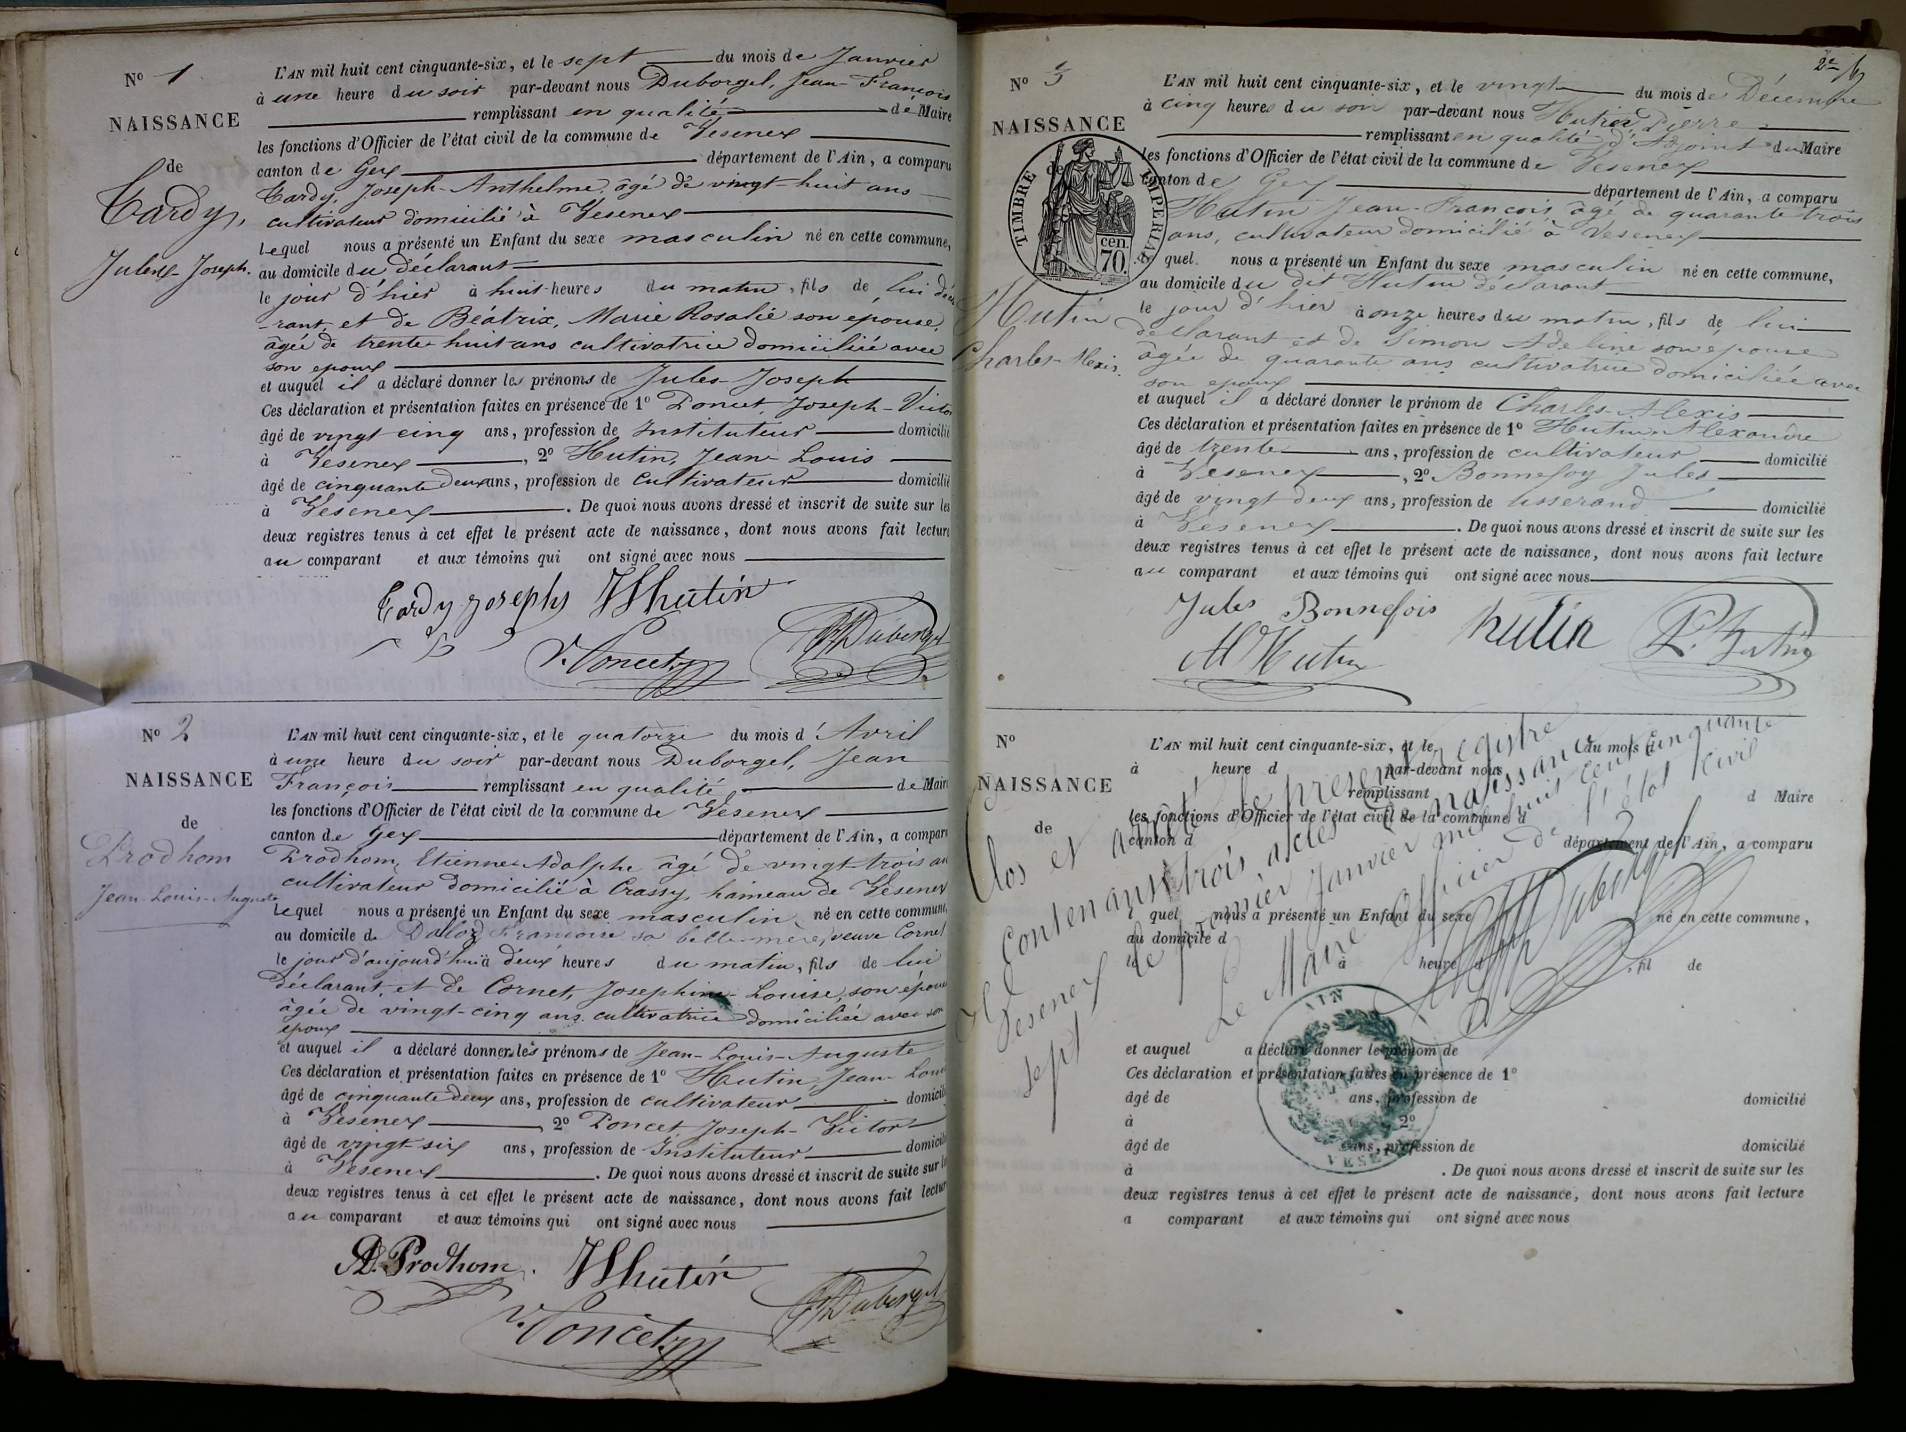 N° 1
NAISSANCE
de
Tardy,
Jules-Joseph.
L'AN mil huit cent cinquante-six, et le sept du mois de Janvier
à une heure du soir par-devant nous Duborgel, Jean-François
remplissant en qualité de Maire
les fonctions d'Officier de l'état civil de la commune de Vesenex
canton de Gex département de l'Ain, a comparu
Tardy, Joseph-Anthelme, âgé de vingt-huit ans
cultivateur domicilié à Vesenex
Lequel nous a présenté un Enfant du sexe masculin né en cette commune,
au domicile du déclarant
le jour d'hier à huit heures du matin, fils de lui décla
-rant, et de Béatrix, Marie Rosalie son épouse,
âgée de trente-huit ans cultivatrice domiciliée avec
son epoux
et auquel il a déclaré donner les prénoms de Jules-Joseph
Ces déclaration et présentation faites en présence de 1° Poncet, Joseph-Victor
âgé de vingt cinq ans, profession de Instituteur domicilié
à Vesenex, 2° Hutin, Jean-Louis
âgé de cinquante deux ans, profession de cultivateur domicilié
à Vesenex. De quoi nous avons dressé et inscrit de suite sur les
deux registres tenus à cet effet le présent acte de naissance, dont nous avons fait lecture
au comparant et aux témoins qui ont signé avec nous
Tardy josephs JLhutin
V. Poncet JFDuborgel
N° 2
NAISSANCE
de
Prodhom
Jean-Louis-Auguste
L'AN mil huit cent cinquante-six, et le quatorze du mois d'Avril
à une heure du soir par-devant nous Duborgel, Jean
François remplissant en qualité de Maire
les fonctions d'Officier de l'état civil de la commune de Vesenex
canton de Gex département de l'Ain, a comparu
Prodhom, Etienne-Adolphe, âgé de vingt-trois an
cultivateur domicilié à Crassy, hameau de Vesenex
Lequel nous a présenté un Enfant du sexe masculin né en cette commune,
au domicile de Daloz Françoise sa belle-mère, veuve Cornet
le jour d'aujourd'hui à deux heures du matin, fils de lui
déclarant, et de Cornet, Josephine-Louise, son épouse
âgée de vingt-cinq ans cultivatrice domiciliée avec son
epoux
et auquel il a déclaré donner les prénoms de Jean-Louis-Auguste
Ces déclaration et présentation faites en présence de 1° Hutin, Jean-Louis
âgé de cinquante deux ans, profession de cultivateur domicilié
à Vesenex, 2° Poncet Joseph-Victor
âgé de vingt-six ans, profession de Instituteur domicilié
à Vesenex. De quoi nous avons dressé et inscrit de suite sur les
deux registres tenus à cet effet le présent acte de naissance, dont nous avons fait lecture
au comparant et aux témoins qui ont signé avec nous
A. Prodhom. JLhutin
V. Poncet JFDuborgel
N° 3
NAISSANCE
de
TIMBRE IMPERIAL
70. cen.
Hutin
Charles-Alexis.
L'AN mil huit cent cinquante-six, et le vingt du mois de Décembre
à cinq heures du soir par-devant nous Hutin Pierre
remplissant en qualité d'Adjoint du Maire
les fonctions d'Officier de l'état civil de la commune de Vesenex
canton de Gex département de l'Ain, a comparu
Hutin Jean-François, âgé de quarante trois
ans, cultivateur domicilié à Vesenex
quel nous a présenté un Enfant du sexe masculin né en cette commune,
au domicile du dit Hutin déclarant
le jour d'hier à onze heures du matin, fils de lui
déclarant et de Simon Adeline son épouse
âgée de quarante ans cultivatrice domiciliée avec
son epoux
et auquel il a déclaré donner le prénom de Charles-Alexis
Ces déclaration et présentation faites en présence de 1° Hutin Alexandre
âgé de trente ans, profession de cultivateur domicilié
à Vesenex, 2° Bonnefoy Jules
âgé de vingt deux ans, profession de tisserand domicilié
à Vesenex. De quoi nous avons dressé et inscrit de suite sur les
deux registres tenus à cet effet le présent acte de naissance, dont nous avons fait lecture
au comparant et aux témoins qui ont signé avec nous
Jules Bonnefois hutin P. Hutin
Al Hutin
N°
NAISSANCE
de
L'AN mil huit cent cinquante-six, et le du mois d
à heure d par-devant nous
remplissant d Maire
les fonctions d'Officier de l'état civil de la commune d
canton d département de l'Ain, a comparu
quel nous a présenté un Enfant du sexe né en cette commune,
au domicile d
le à heure d, fil de
et auquel a déclaré donner le prénom de
Ces déclaration et présentation faites en présence de 1°
âgé de ans, profession de domicilié
à 2°
âgé de ans, profession de domicilié
à. De quoi nous avons dressé et inscrit de suite sur les
deux registres tenus à cet effet le présent acte de naissance, dont nous avons fait lecture
a comparant et aux témoins qui ont signé avec nous
Clos et arrêté le présent registre
Contenant trois actes de naissance
Vesenex le premier Janvier mil huit cent cinquante
sept
Le Maire Officier de l'état Civil
JFDuborgel
AIN
VESENEX